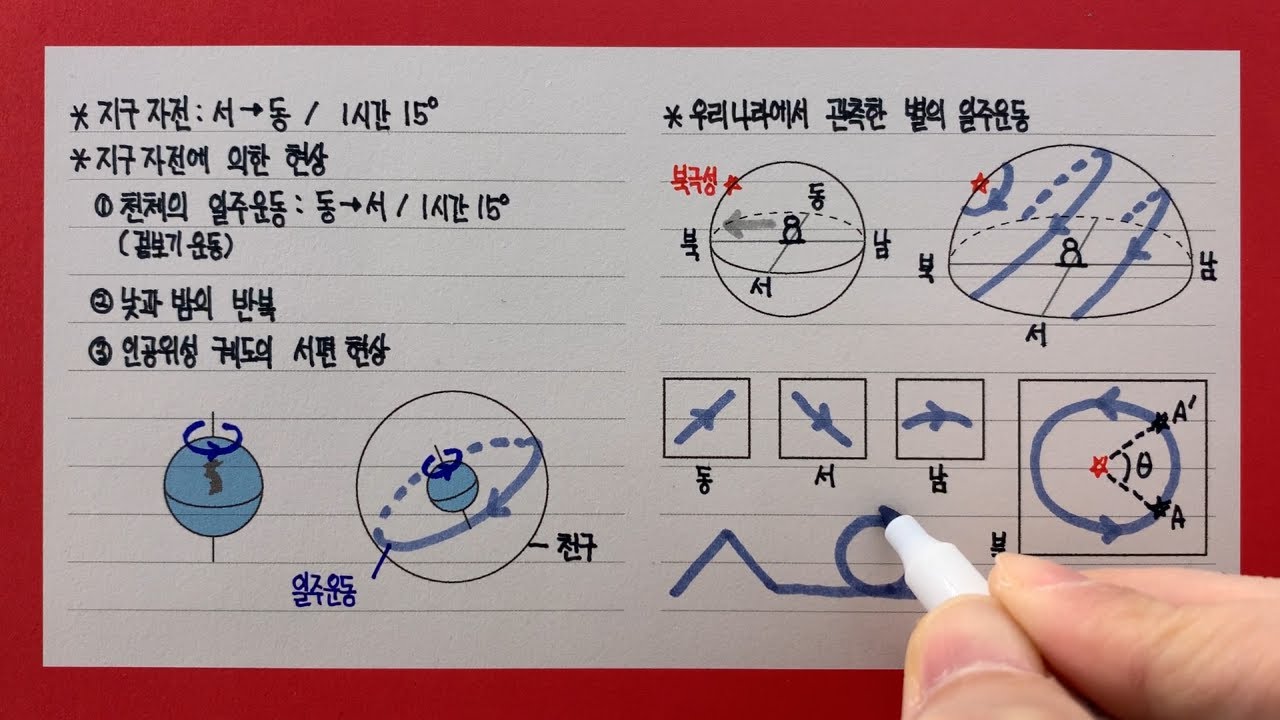 * 지구 자전 : 서 → 동 / 1시간 15°
* 지구 자전에 의한 현상
① 천체의 일주운동 : 동 → 서 / 1시간 15°
(겉보기 운동)
② 낮과 밤의 반복
③ 인공위성 궤도의 서편 현상
천구
일주운동
* 우리나라에서 관측한 별의 일주운동
북극성
동
북
남
서
북
남
서
동
서
남
A'
θ
A
북